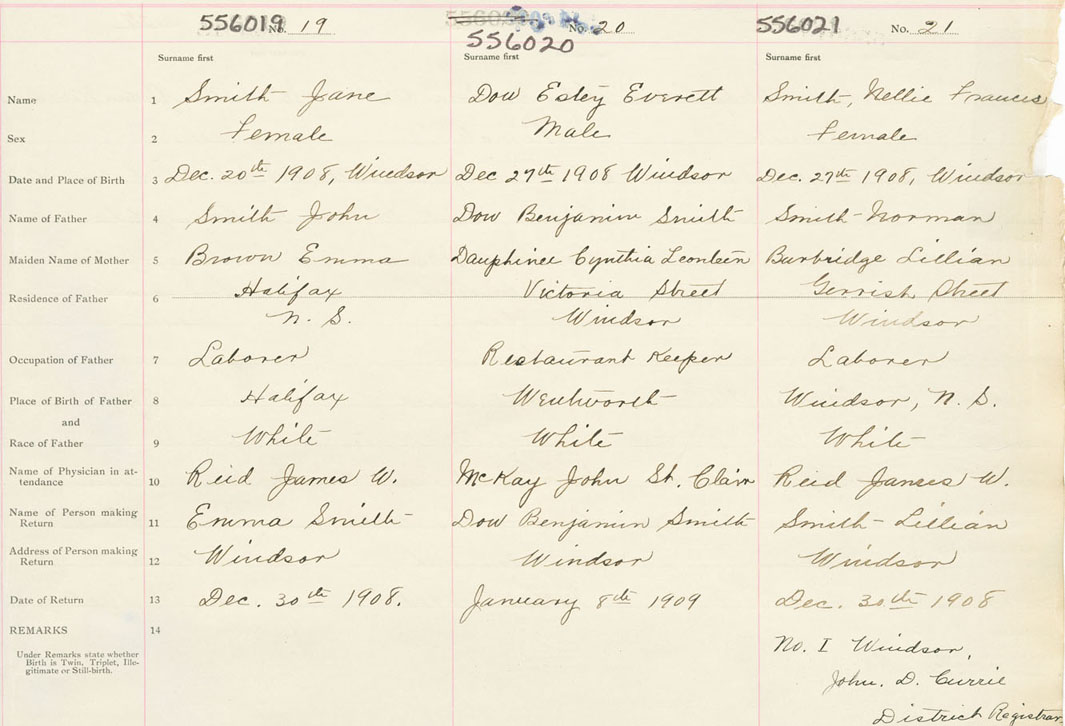 556019 No. 19 No. 20 556021 No. 21
556020
Surname first Surname first Surname first
Name 1 Smith Jane Dow Estey Everett Smith, Nellie Frances
Sex 2 Female Male Female
Date and Place of Birth 3 Dec. 20th 1908, Windsor Dec 27th 1908 Windsor Dec. 27th 1908, Windsor
Name of Father 4 Smith John Dow Benjamin Smith Smith Norman
Maiden Name of Mother 5 Brown Emma Dauphinee Cynthia Leonteen Burbridge Lillian
Residence of Father 6 Halifax Victoria Street Gerrish Street
N. S. Windsor Windsor
Occupation of Father 7 Laborer Restaurant Keeper Laborer
Place of Birth of Father 8 Halifax Wentworth Windsor, N. S.
and
Race of Father 9 White White White
Name of Physician in at-
tendance 10 Reid James W. McKay John St. Clair Reid James W.
Name of Person making
Return 11 Emma Smith Dow Benjamin Smith Smith - Lillian
Address of Person making
Return 12 Windsor Windsor Windsor
Date of Return 13 Dec. 30th 1908. January 8th 1909 Dec. 30th 1908
REMARKS 14
Under Remarks state whether
Birth is Twin, Triplet, Ille-
gitimate or Still-birth.
No. I Windsor,
John. D. Currie
District Registrar